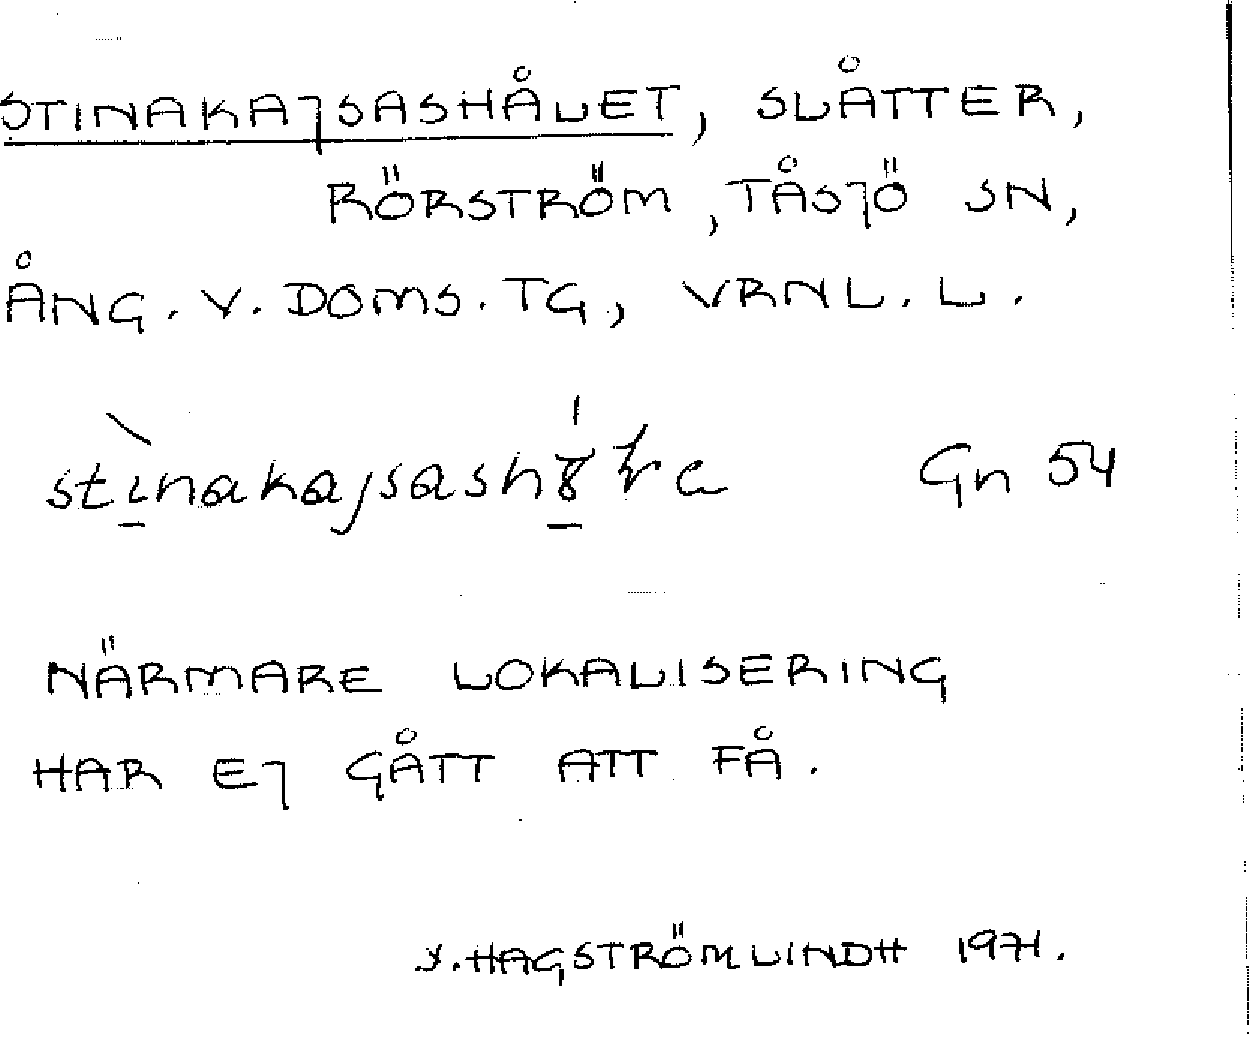 STINAKAJSASHÅLET, SLÅTTER,
RÖRSTRÖM, TÅSJÖ SN,
ÅNG. V. DOMS. TG, VRNL. L.
Gn 54
NÄRMARE LOKALISERING
HAR EJ GÅTT ATT FÅ.
Y. HAGSTRÖM LINDH 1971.